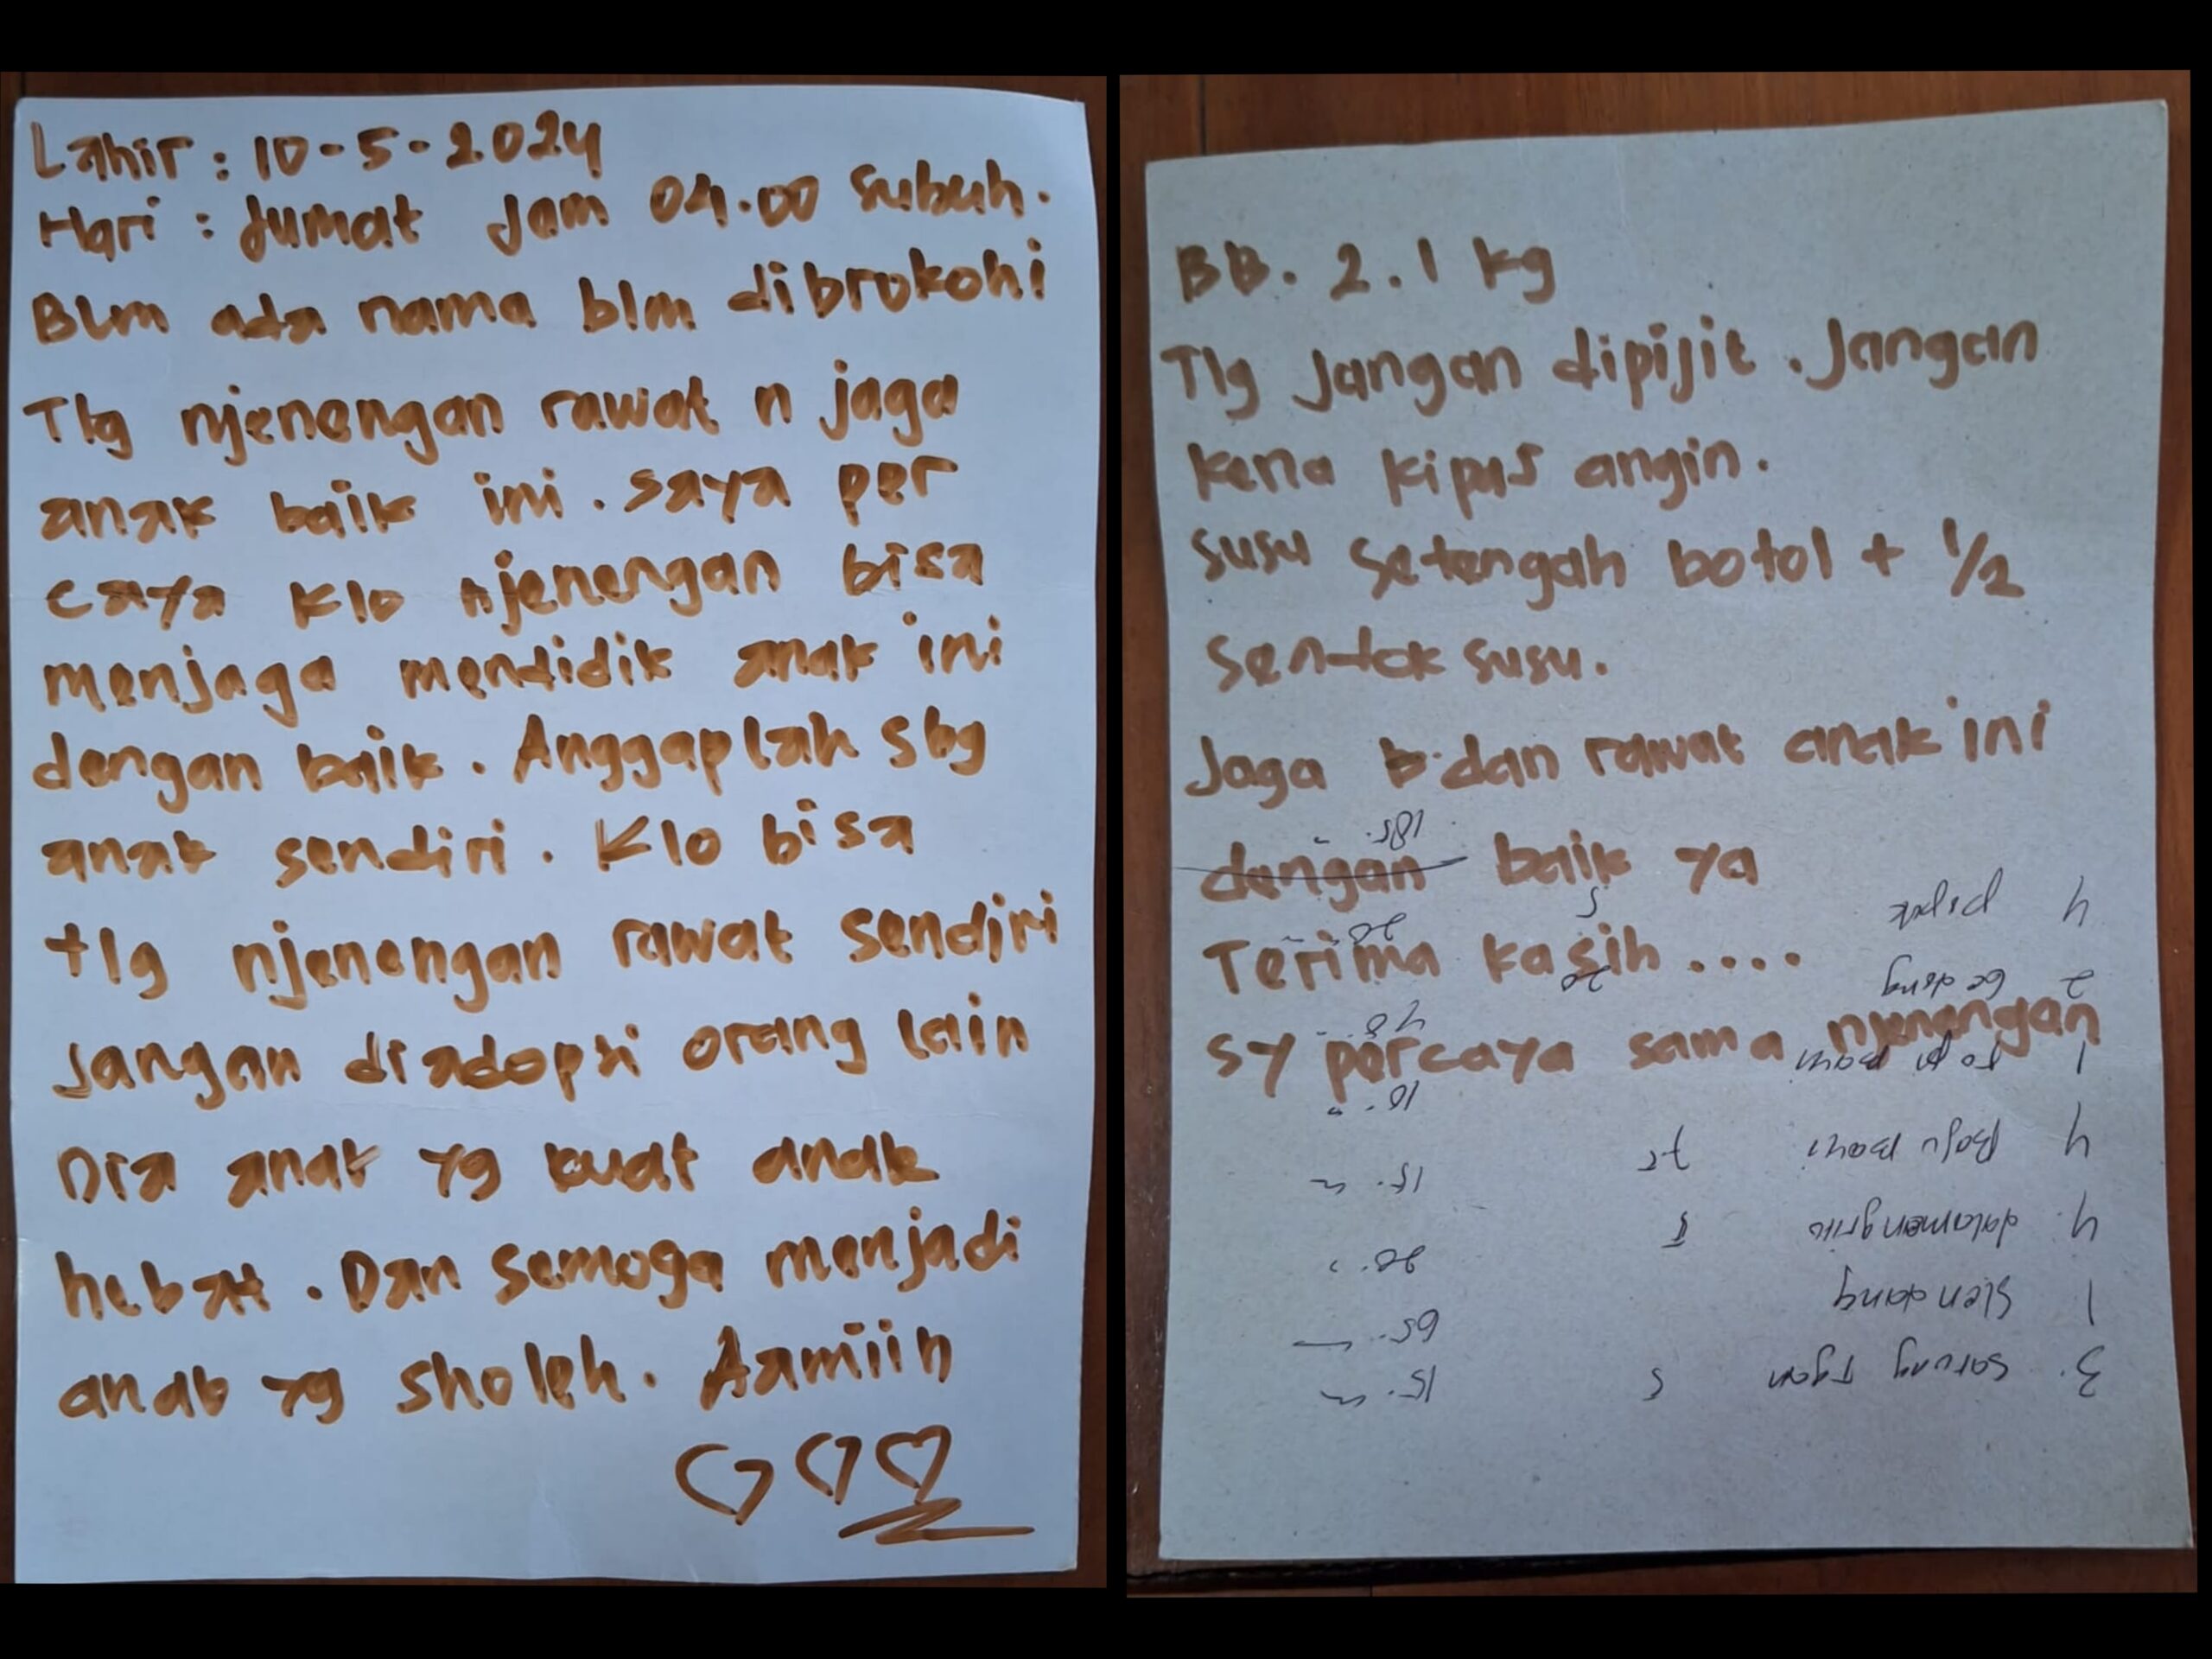 Lahir : 10-5-2024
Hari : Jumat Jam 04.00 Subuh.
Blm ada nama blm dibrokohi
Tlg njenengan rawat n jaga
anak baik ini. saya per
caya klo njenengan bisa
menjaga mendidik anak ini
dengan baik. Anggaplah sbg
anak sendiri. Klo bisa
tlg njenengan rawat sendiri
Jangan diadopsi orang lain
Dia anak yg kuat anak
hebat. Dan semoga menjadi
anak yg sholeh. Aamiin
BB. 2.1 kg
Tlg Jangan dipijit. Jangan
kena kipas angin.
susu setengah botol + 1/2
sentok susu.
Jaga b dan rawat anak ini
dengan baik ya
Terima kasih ....
sy percaya sama njenengan
3. sarung Tgan 5 15.
1 slendang 65.
4. 5 20.
4 Baju Bayi 75 15.
1 10.
2 Bedong 40.
4 popok 20
185.